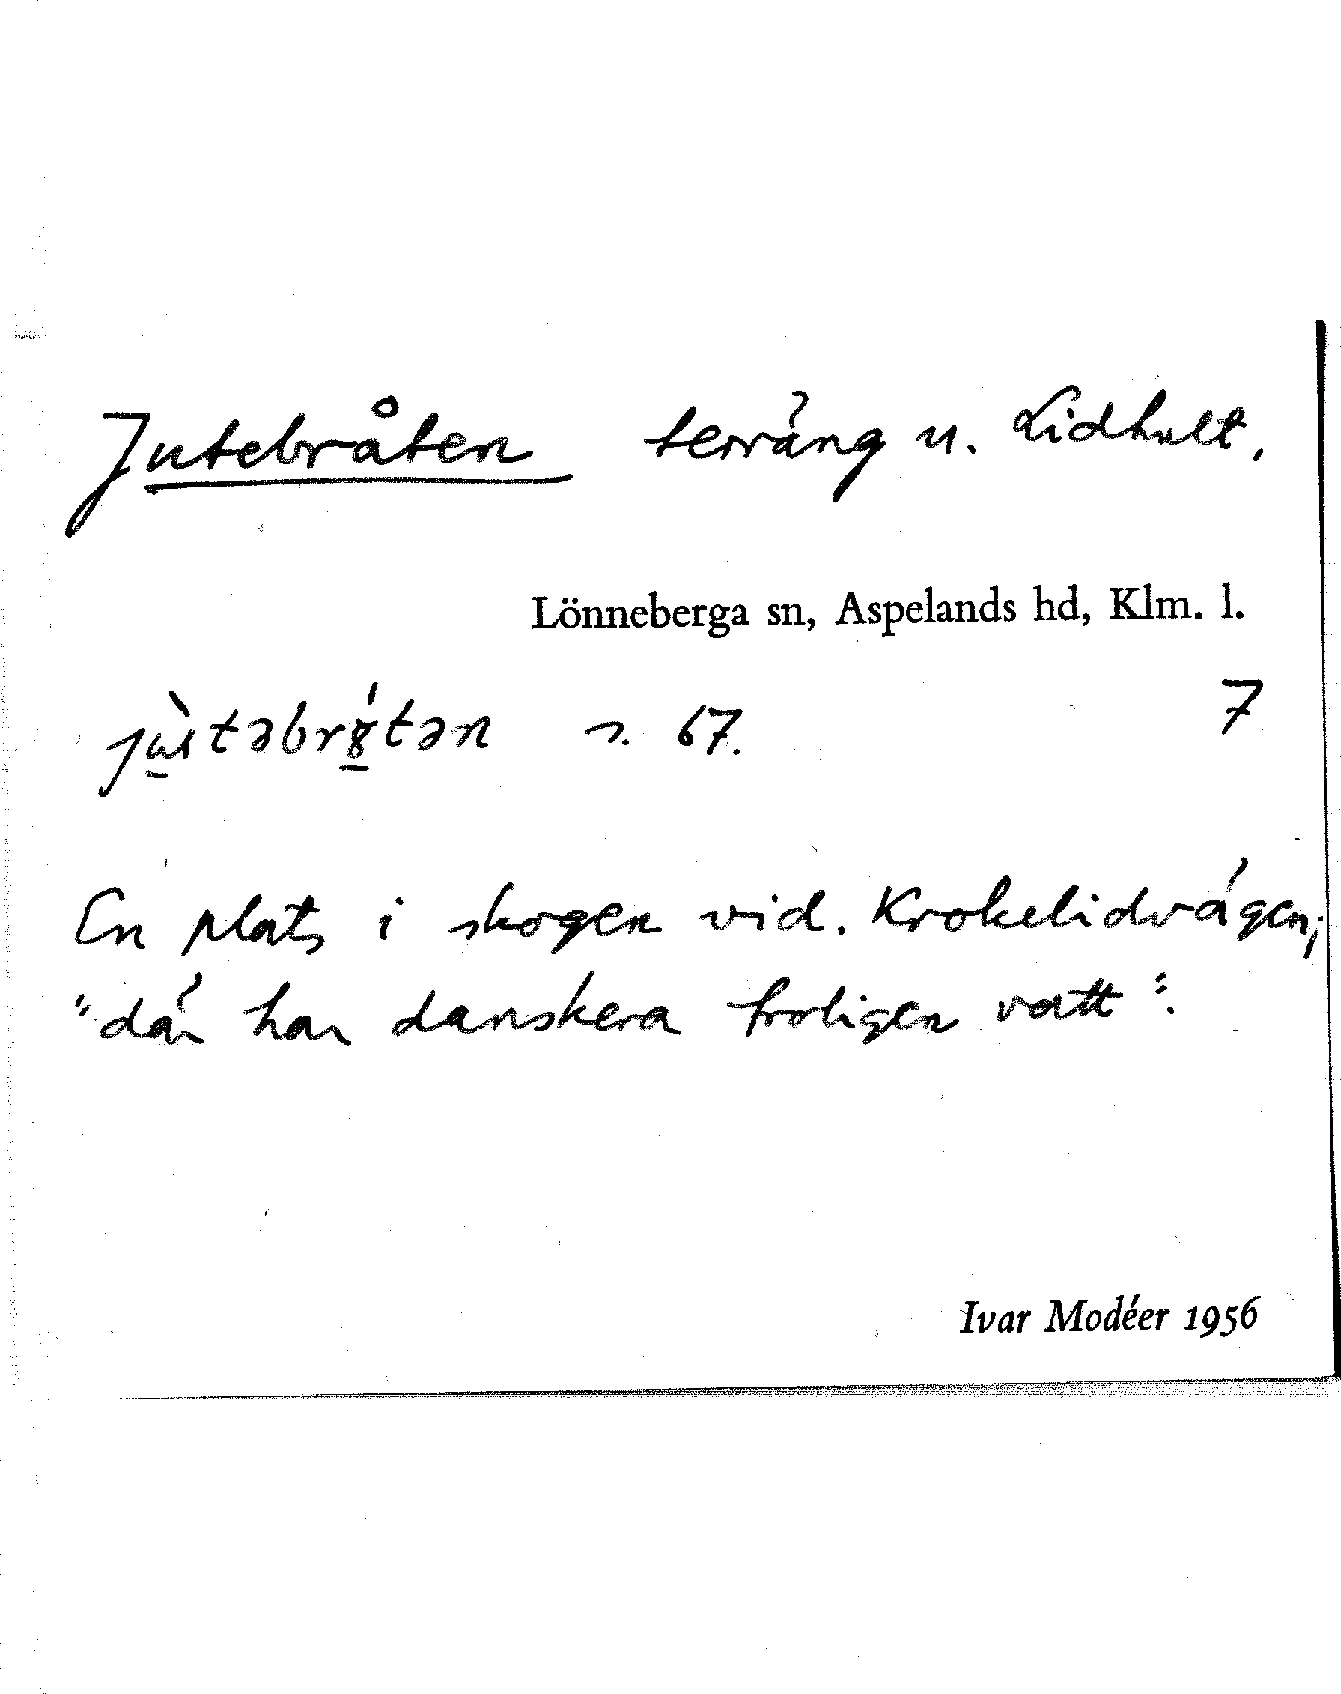 Jutebråten terräng u. Lidhult,
Lönneberga sn, Aspelands hd, Klm. l.
s. 67. 7
En plats i skogen vid. Krokelidvägen;
"där har danskera troligen vatt".
Ivar Modéer 1956